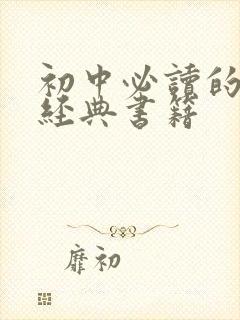 初中必讀的
經典書籍
靡初